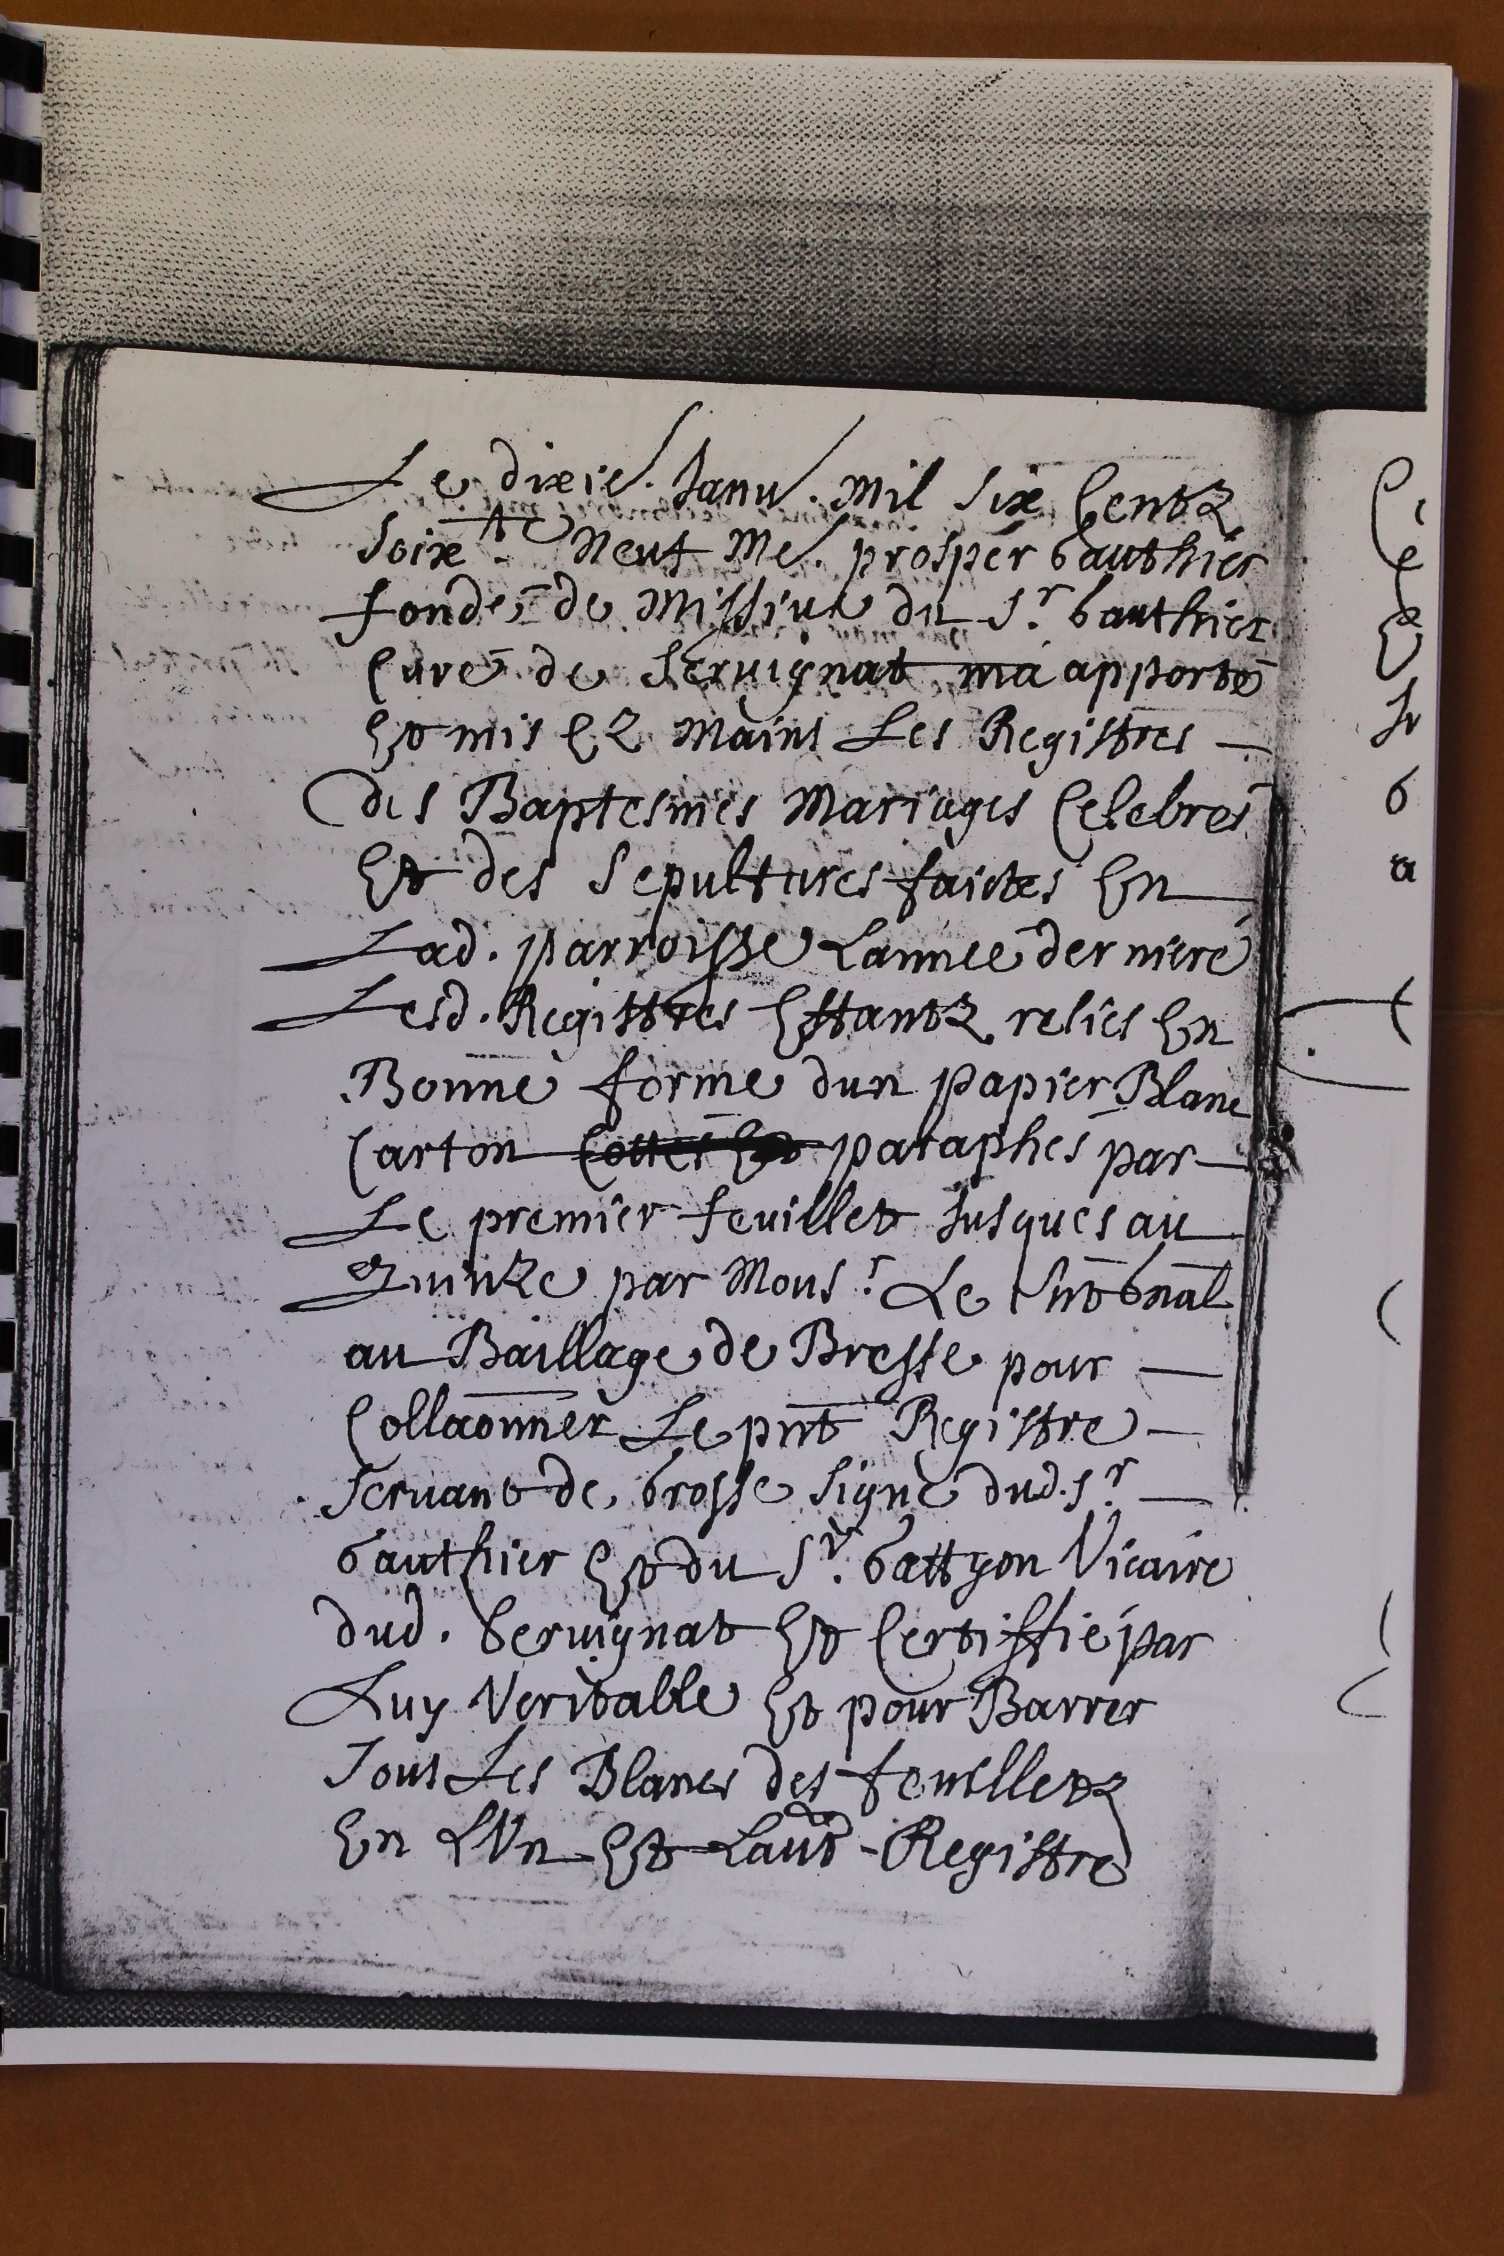 Le dixie. Janv. mil six Centz
soix.te neuf Me. prosper Gauthier
fondé de missiue du Sr. Gauthier
Curé de Seruignat ma apporté
Et mis Ez mains Les Registres
des Baptesmes mariages Celebres
Et des Sepultures faictes En
Lad. parroisse Lannee derniere
Lesd. Registres Estantz reliés En
Bonne forme dun papier Blanc
Carton Cottés Et paraphés par
Le premier feuillet Jusques au
quinze par Monsr. Le Lnt Gnal
au Baillage de Bresse pour
Collaonner Le pnt Registre
Seruant de Grosse signé dud. Sr.
Gauthier Et du Sr. Gattyon Vicaire
dud. Seruignat Et Certiffié par
Luy Veritable Et pour Barrer
Tous Les Blancs des feuilletz
En LVn Et Laut Registre